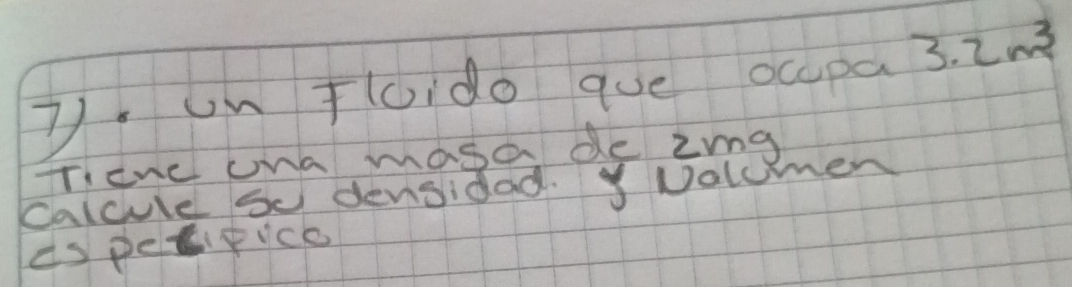 7). un Fluido que ocupa 3.2m³
Tiene una masa de 2mg
calcule su densidad. y Volumen
especifico